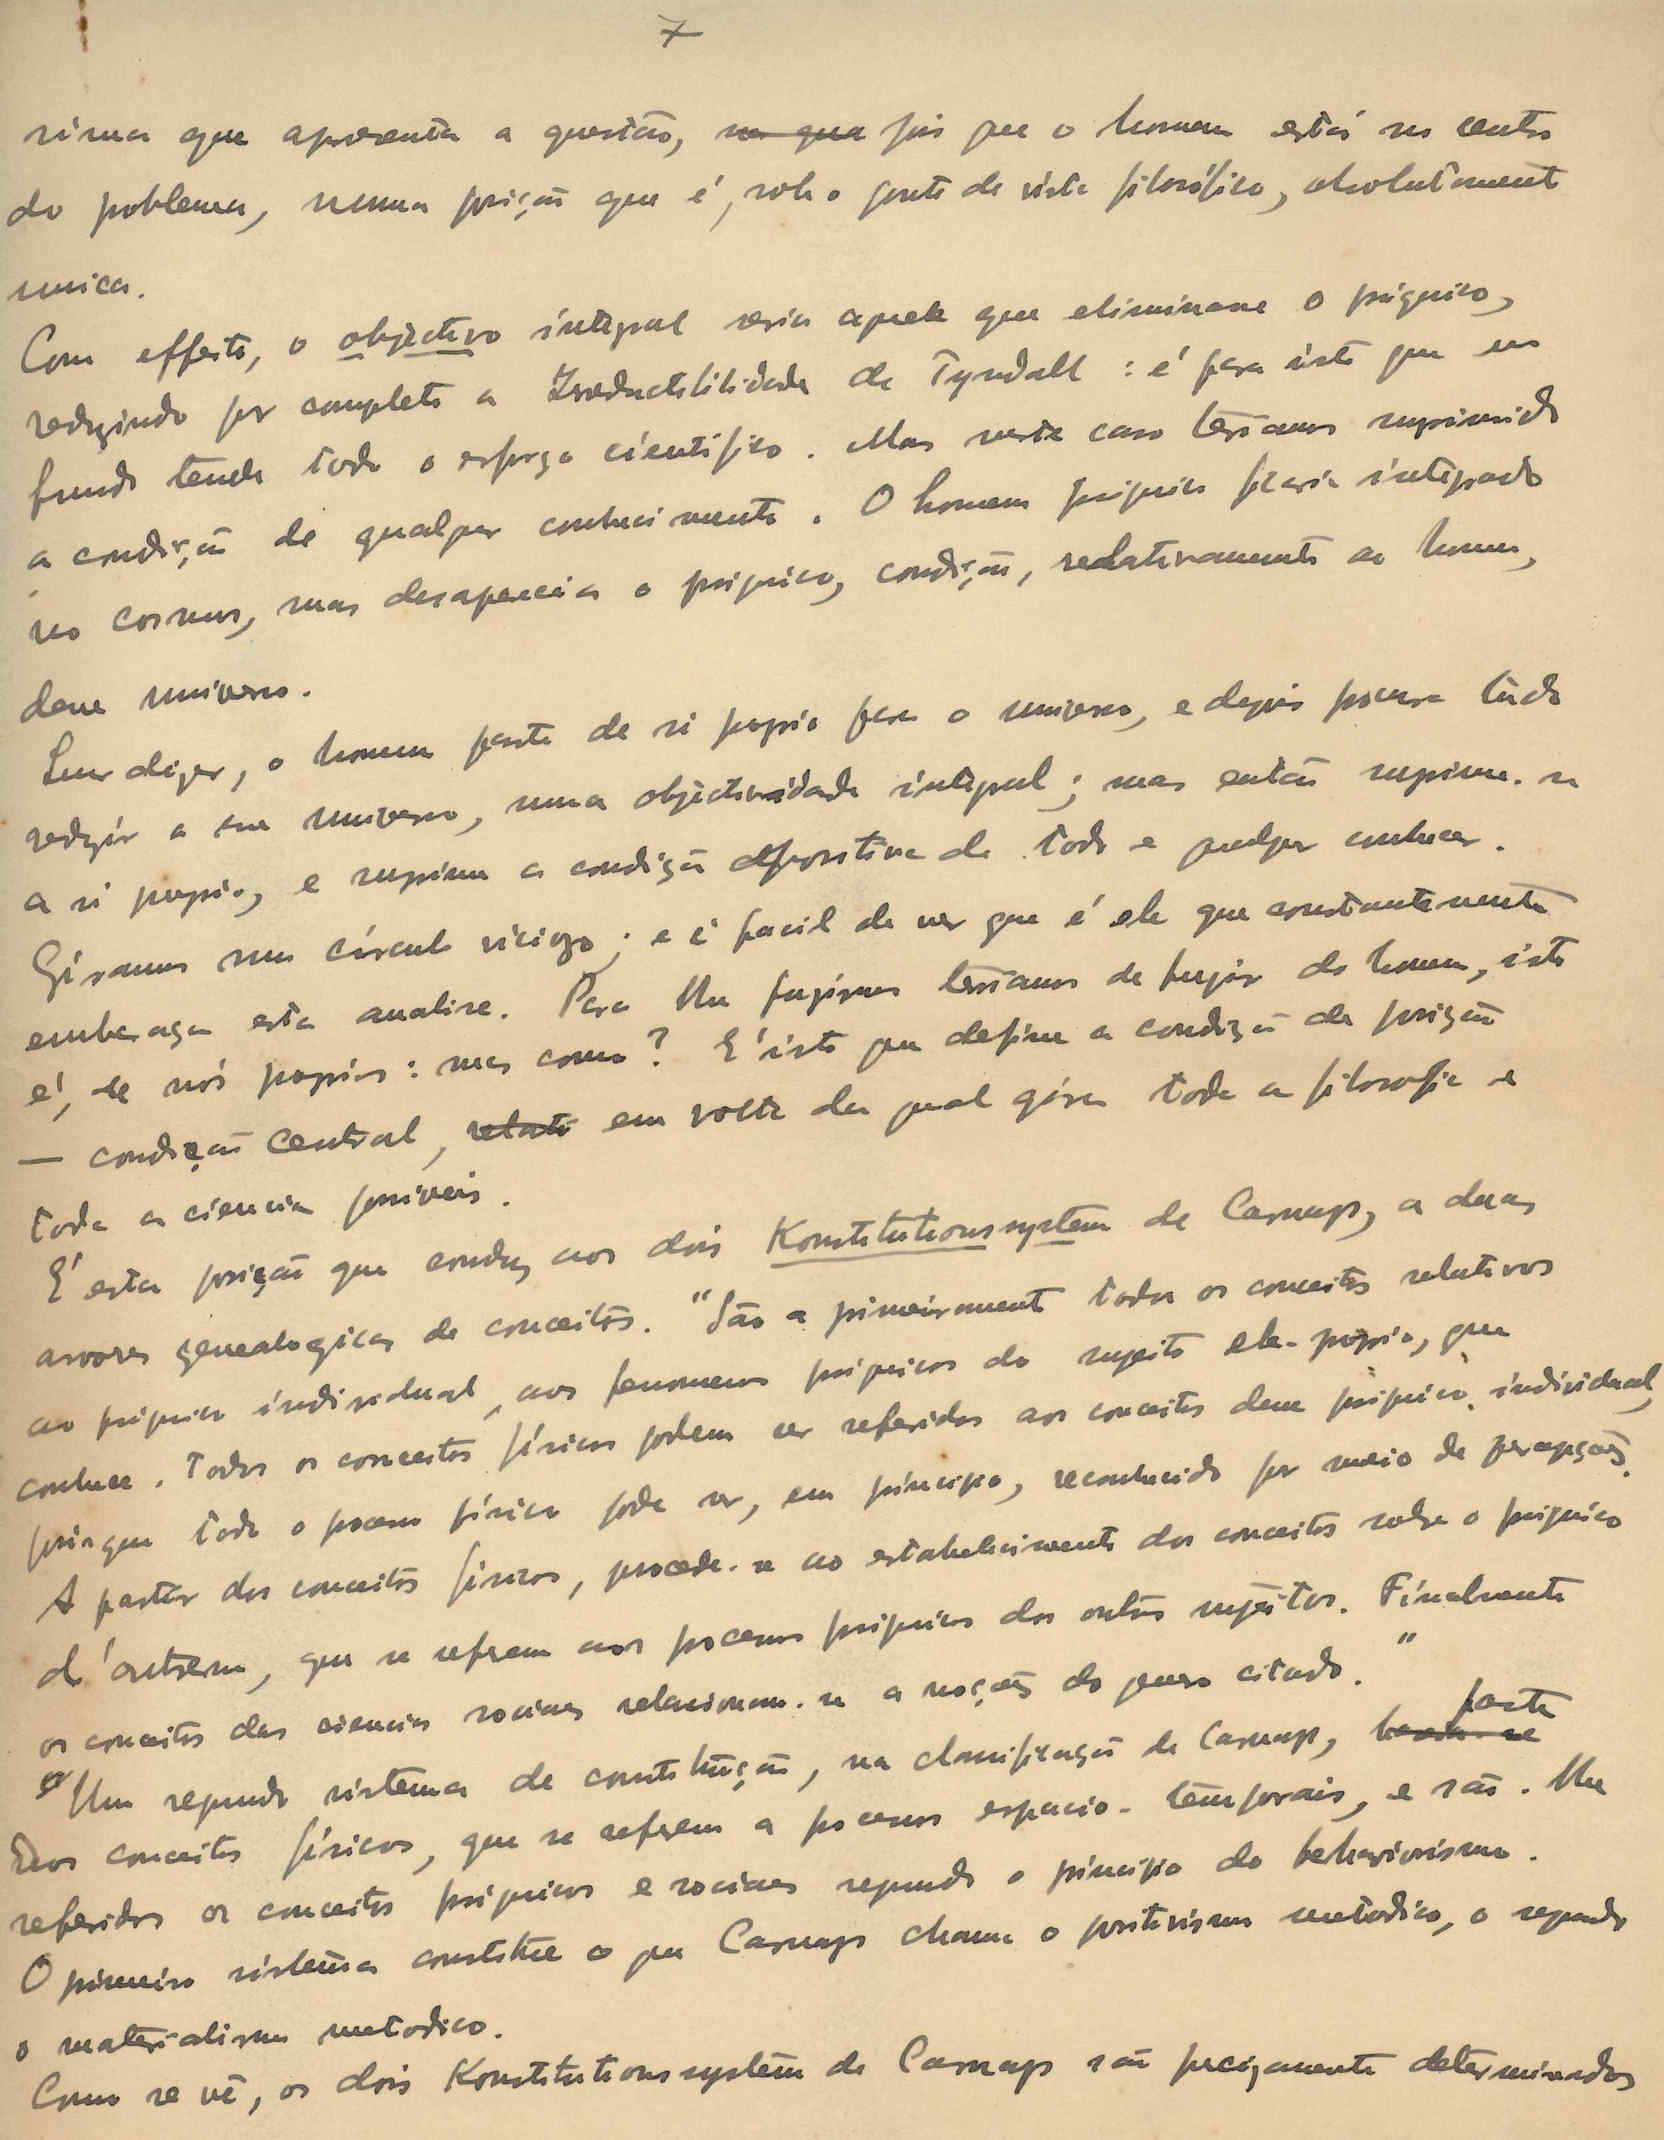 7
sima que apresenta a questão, na qua pois que o homem está no centro
do problema, numa posição que é, sob o ponto de vista filosófico, absolutamente
unica.
Com effeito, o objectivo integral seria aquele que eliminasse o psiquico,
reduzindo por completo a Irreductibilidade de Tyndall : é para isto que no
fundo tende todo o esforço cientifico. Mas neste caso teriamos suprimido
a condição de qualquer conhecimento. O homem psiquico ficaria integrado
no cosmos, mas desaparecia o psiquico, condição, relativamente ao homem,
desse universo.
Quer dizer, o homem parte de si proprio para o universo, e depois procura tudo
reduzir a esse universo, numa objectividade integral; mas então suprime-se
a si proprio, e suprime a condição de todo e qualquer conhecer.
Giramos num circulo vicioso; e é facil de ver que é ele que constantemente
embaraça esta analise. Para lhe fugirmos teriamos de fugir do homem, isto
é, de nós proprios: mas como? E' isto que define a condição da posição
— condição central, relati em volta da qual gira toda a filosofia e
toda a ciencia possiveis.
E' esta posição que conduz aos dois Konstitutionssystem de Carnap, a duas
arvores genealogicas de conceitos. "São a primeiramente todos os conceitos relativos
ao psiquico individual, aos fenomenos psiquicos do sujeito ele-proprio, que
conhece. Todos os conceitos físicos podem ser referidos aos conceitos desse psiquico individual,
porque todo o processo físico pode ser, em principio, reconhecido por meio de percepções.
A partir dos conceitos físicos, procede-se ao estabelecimento dos conceitos sobre o psiquico
d'outrem, que se referem aos processos psiquicos dos outros sujeitos. Finalmente
os conceitos das ciencias sociaes relacionam-se a noções do genero citado."
"Um segundo sistema de constituição, na classificação de Carnap, parte
dos conceitos físicos, que se referem a processos espacio-temporais, e são-lhe
referidos os conceitos psiquicos e sociaes segundo o principio do behaviorismo.
O primeiro sistema constitue o que Carnap chama o positivismo metodico, o segundo
o materialismo metodico.
Como se vê, os dois Konstitutionssystem de Carnap são precisamente determinados